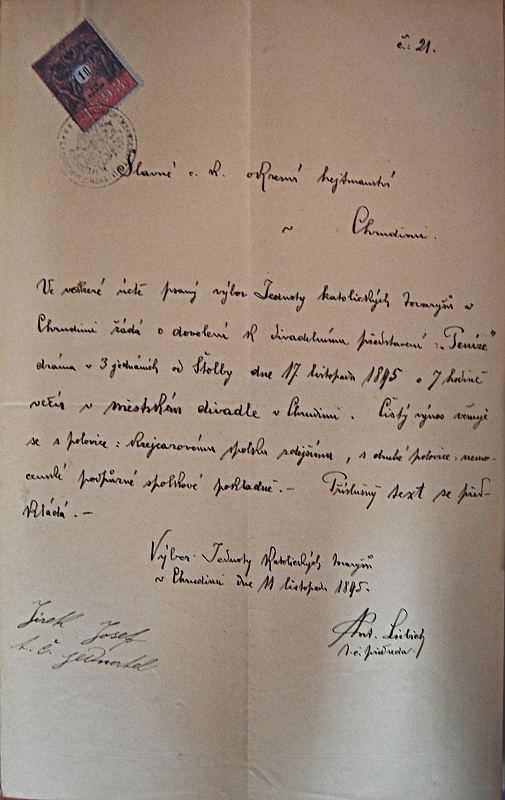 č: 21.
1893
Slavné c. k. okresní hejtmanství
v Chrudimi.
Ve veškeré úctě psaný výbor Jednoty katolických tovaryšů v
Chrudimi žádá o dovolení k divadelnímu představení: „Peníze"
dráma v 3 jednáních od Štolby dne 17 listopadu 1895 o 7 hodině
večer v městském divadle v Chrudimi. Čistý výnos věnuje
se s polovice: Krejcarovému spolku zdejšímu, s druhé polovice: nemo-
censké podpůrné spolkové pokladně.— Příslušný text se před-
kládá.—
Výbor Jednoty katolických tovaryšů
v Chrudimi dne 11 listopadu 1895.
Jirek Josef
t. č. jednatel
Ant.
t. č. předseda.